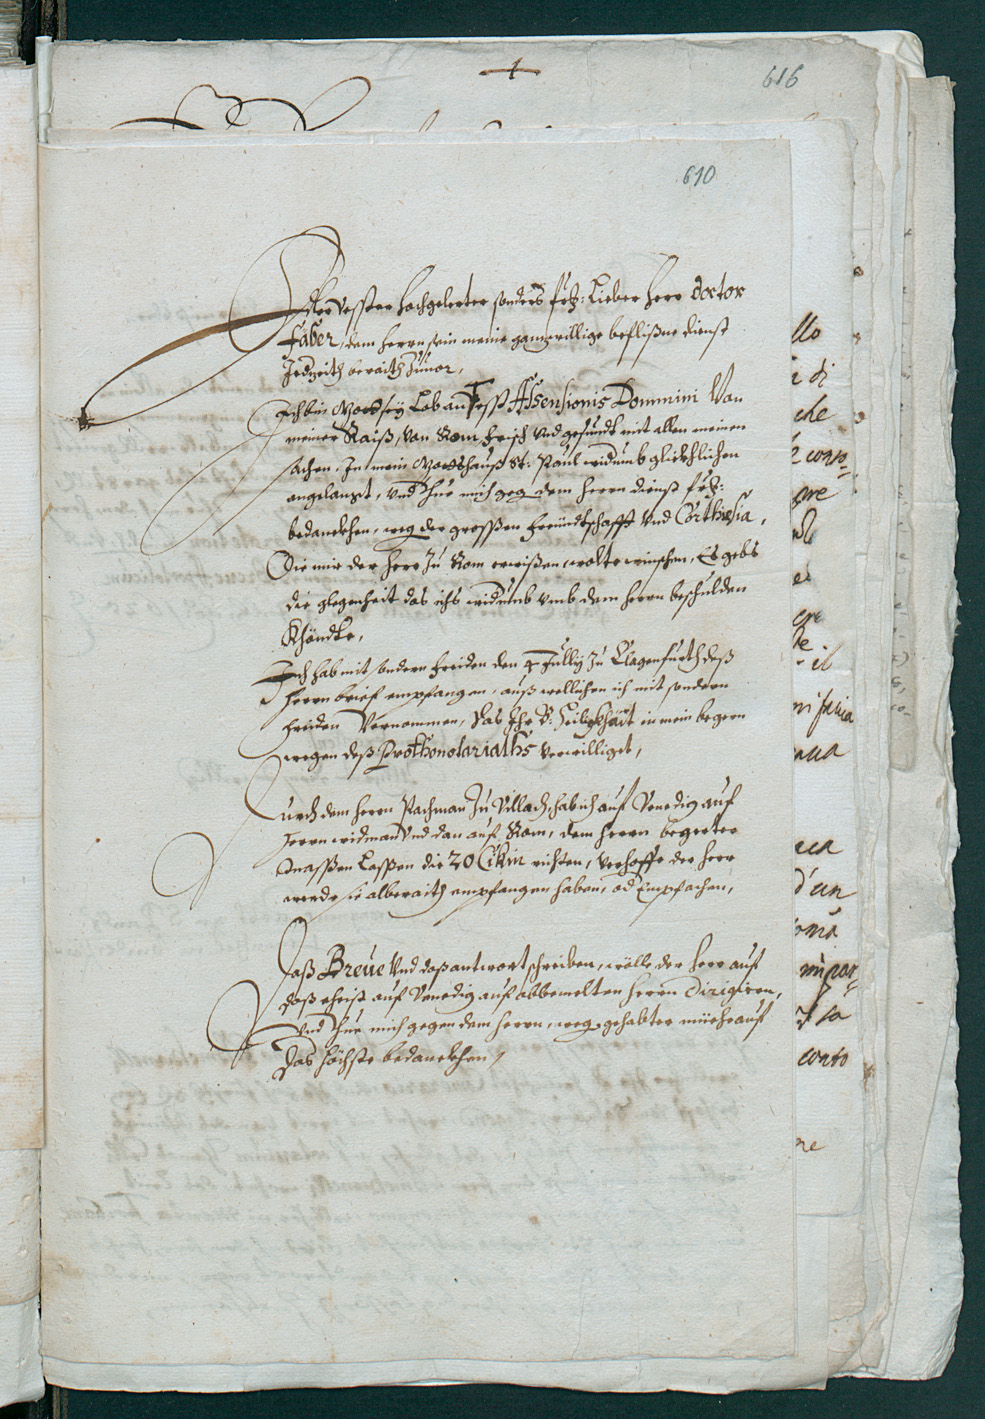 616
610
Edler vesster hochgelerter sonders frh: Lieber Herr Doctor
Faber, dem herrn sein meine ganzwillige beflißne dienst
Jedzeith beraith zuuor,
Ich bin Gott sey Lob an Fesst Assensionis Dommini Von
meiner Raiß, Von Rom frisch Vnd gesundt mit allen meinen
sachen, In mein Gottshauß St: Paul widumb glickhlichen
angelangt, Vnd Thue mich geg dem herrn dienst frh:
bedanckhen, weg der grossen freundtschafft Vnd Corthesia,
Die mir der herr Zu Rom erwißen, wolte winschen, Es gebs
die glegenheit das ichs widumb vmb dem herrn beschulden
Khöndte,
Ich hab mit sondern freiden den 4 Jullij Zu Clagenfurth deß
herrn brief empfangen, auß wellichen ich mit sondern
freiden Vernommen, Das Ihr B: heiligkhäit in mein begern
wegen deß Prothonotariaths Verwilliget,
Durch dem herrn Pachman Zu Villach, hab ich auf Venedig auf
herrn widman Vnd dan auf Rom, dem herrn begerter
massen Lassen die 20 Cikin richten, Verhoffe der herr
werde sie alberaith empfangen haben, od Empfachen,
Daß Breue Vnd daß antwortschreiben, wölle der herr auf
daß ehist auf Venedig auf abbemelten herrn dirigieren,
Vnd Thue mich gegen dem herrn, weg gehabter müehe auf
das höchste bedanckhen,
llo
i di
che
conto
ne